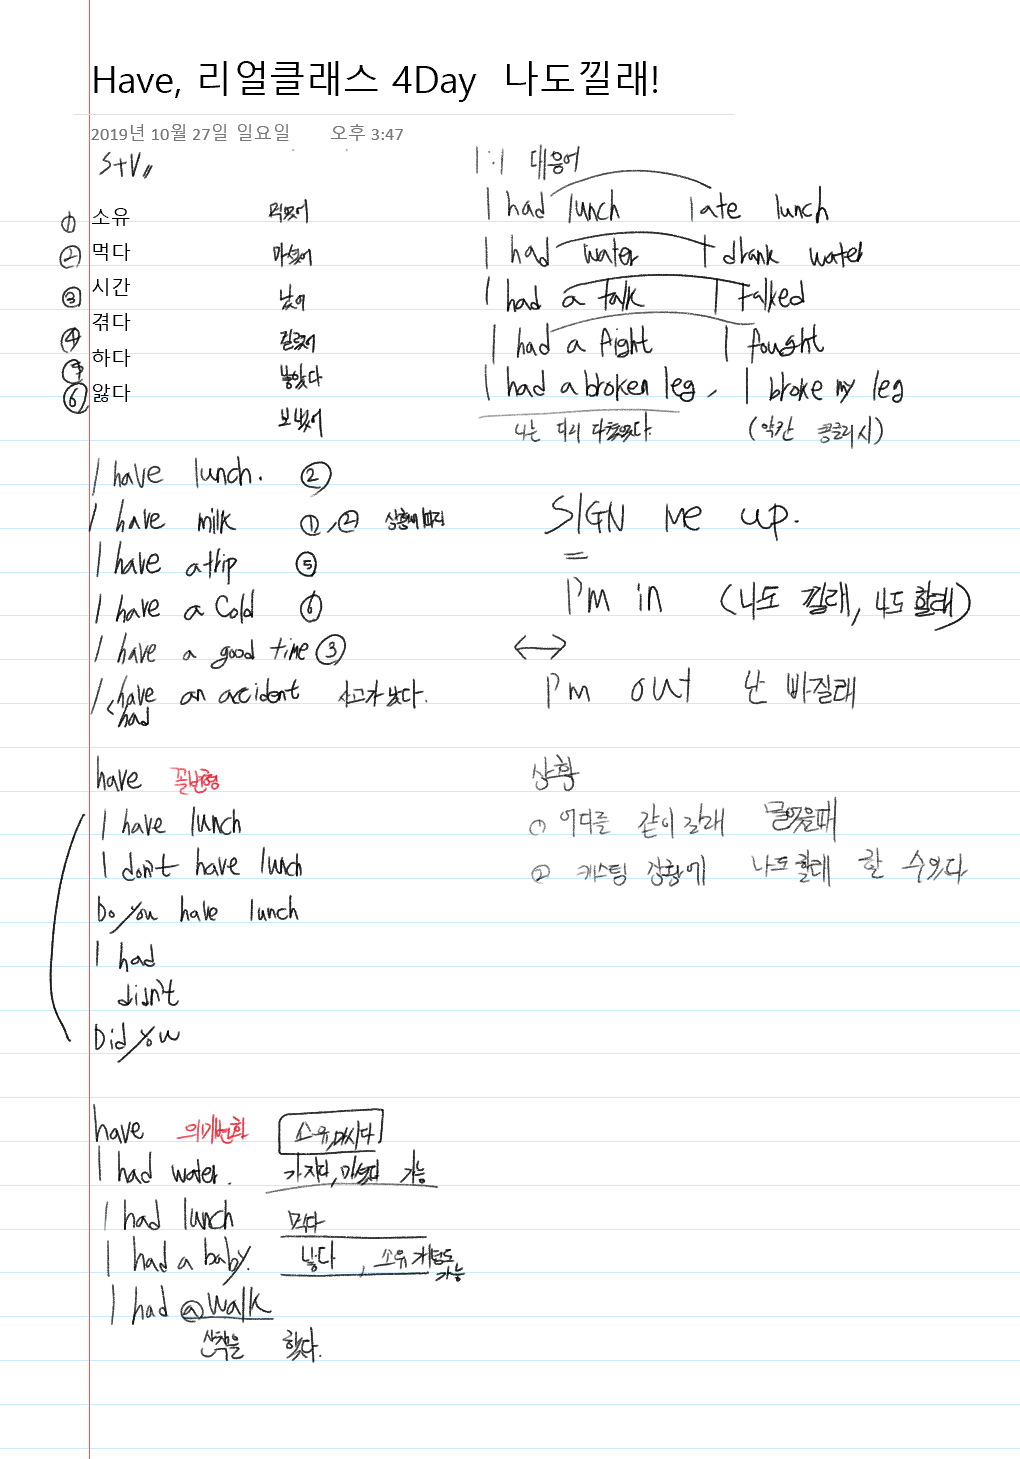 Have, 리얼클래스 4Day 나도낄래!
2019년 10월 27일 일요일 오후 3:47
S+V
① 소유
② 먹다
③ 시간
④ 겪다
⑤ 하다
⑥ 앓다
먹었어
마셨어
났어
걸렸어
낳았다
보냈어
1:1 대응어
I had lunch I ate lunch
I had water I drank water
I had a talk I talked
I had a fight I fought
I had a broken leg, I broke my leg
나는 다리 다쳤었다. (약간 콩글리시)
I have lunch. ②
I have milk ①,② 상황에 따라
I have a trip ⑤
I have a cold ⑥
I have a good time ③
I have an accident 사고가 났다.
had
SIGN me up.
=
I'm in (나도 낄래, 나도 할래)
↔
I'm out 난 빠질래
have 꼴변형
I have lunch
I don't have lunch
Do you have lunch
I had
didn't
Did you
상황
① 어디를 같이 갈래 물었을때
② 캐스팅 상황에 나도할래 할 수있다
have 의미변화 소유,마시다
I had water. 가지다,마셨다 가능
I had lunch 먹다
I had a baby. 낳다, 소유 개념도 가능
I had a walk
산책을 했다.